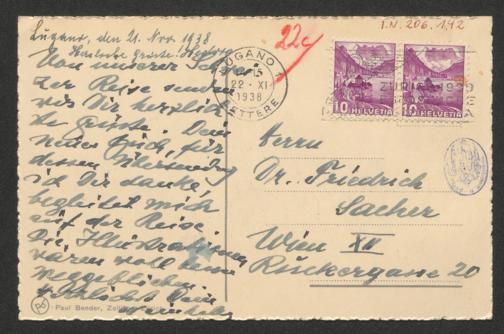 Lugano, den 21. Nov. 1938
Herzliche Grüße
Von unserer
Reise senden
wir Dir herzlich
Grüsse. Dein
neues Buch, für
dessen Übersendung
ich Dir danke,
begleitet mich
auf der Reise.
Die Illustrationen
wären wohl besser
weggeblieben.
Dein
Paul Bender, Zollikon
22c
I.N. 206.192
LUGANO 1
22. XI
1938
LETTERE
10 HELVETIA
10 HELVETIA
ZÜRICH 1939
Herrn
Dr. Friedrich
Sacher
Wien XII
Rückergasse 20